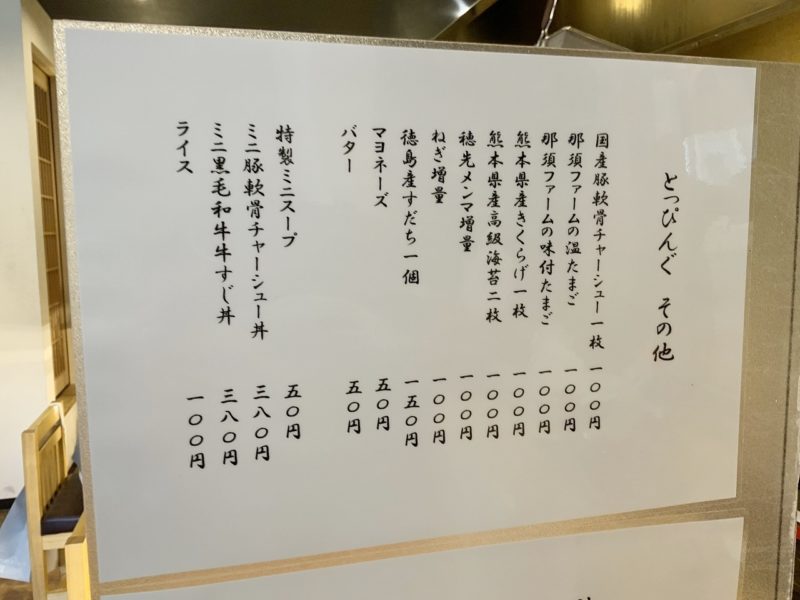 とっぴんぐ その他
国産豚軟骨チャーシュー一枚 一〇〇円
那須ファームの温たまご 一〇〇円
那須ファームの味付たまご 一〇〇円
熊本県産きくらげ一枚 一〇〇円
熊本県産高級海苔二枚 一〇〇円
穂先メンマ増量 一〇〇円
ねぎ増量 一〇〇円
徳島産すだち一個 一五〇円
マヨネーズ 五〇円
バター 五〇円
特製ミニスープ 五〇円
ミニ豚軟骨チャーシュー丼 三八〇円
ミニ黒毛和牛牛すじ丼 三八〇円
ライス 一〇〇円